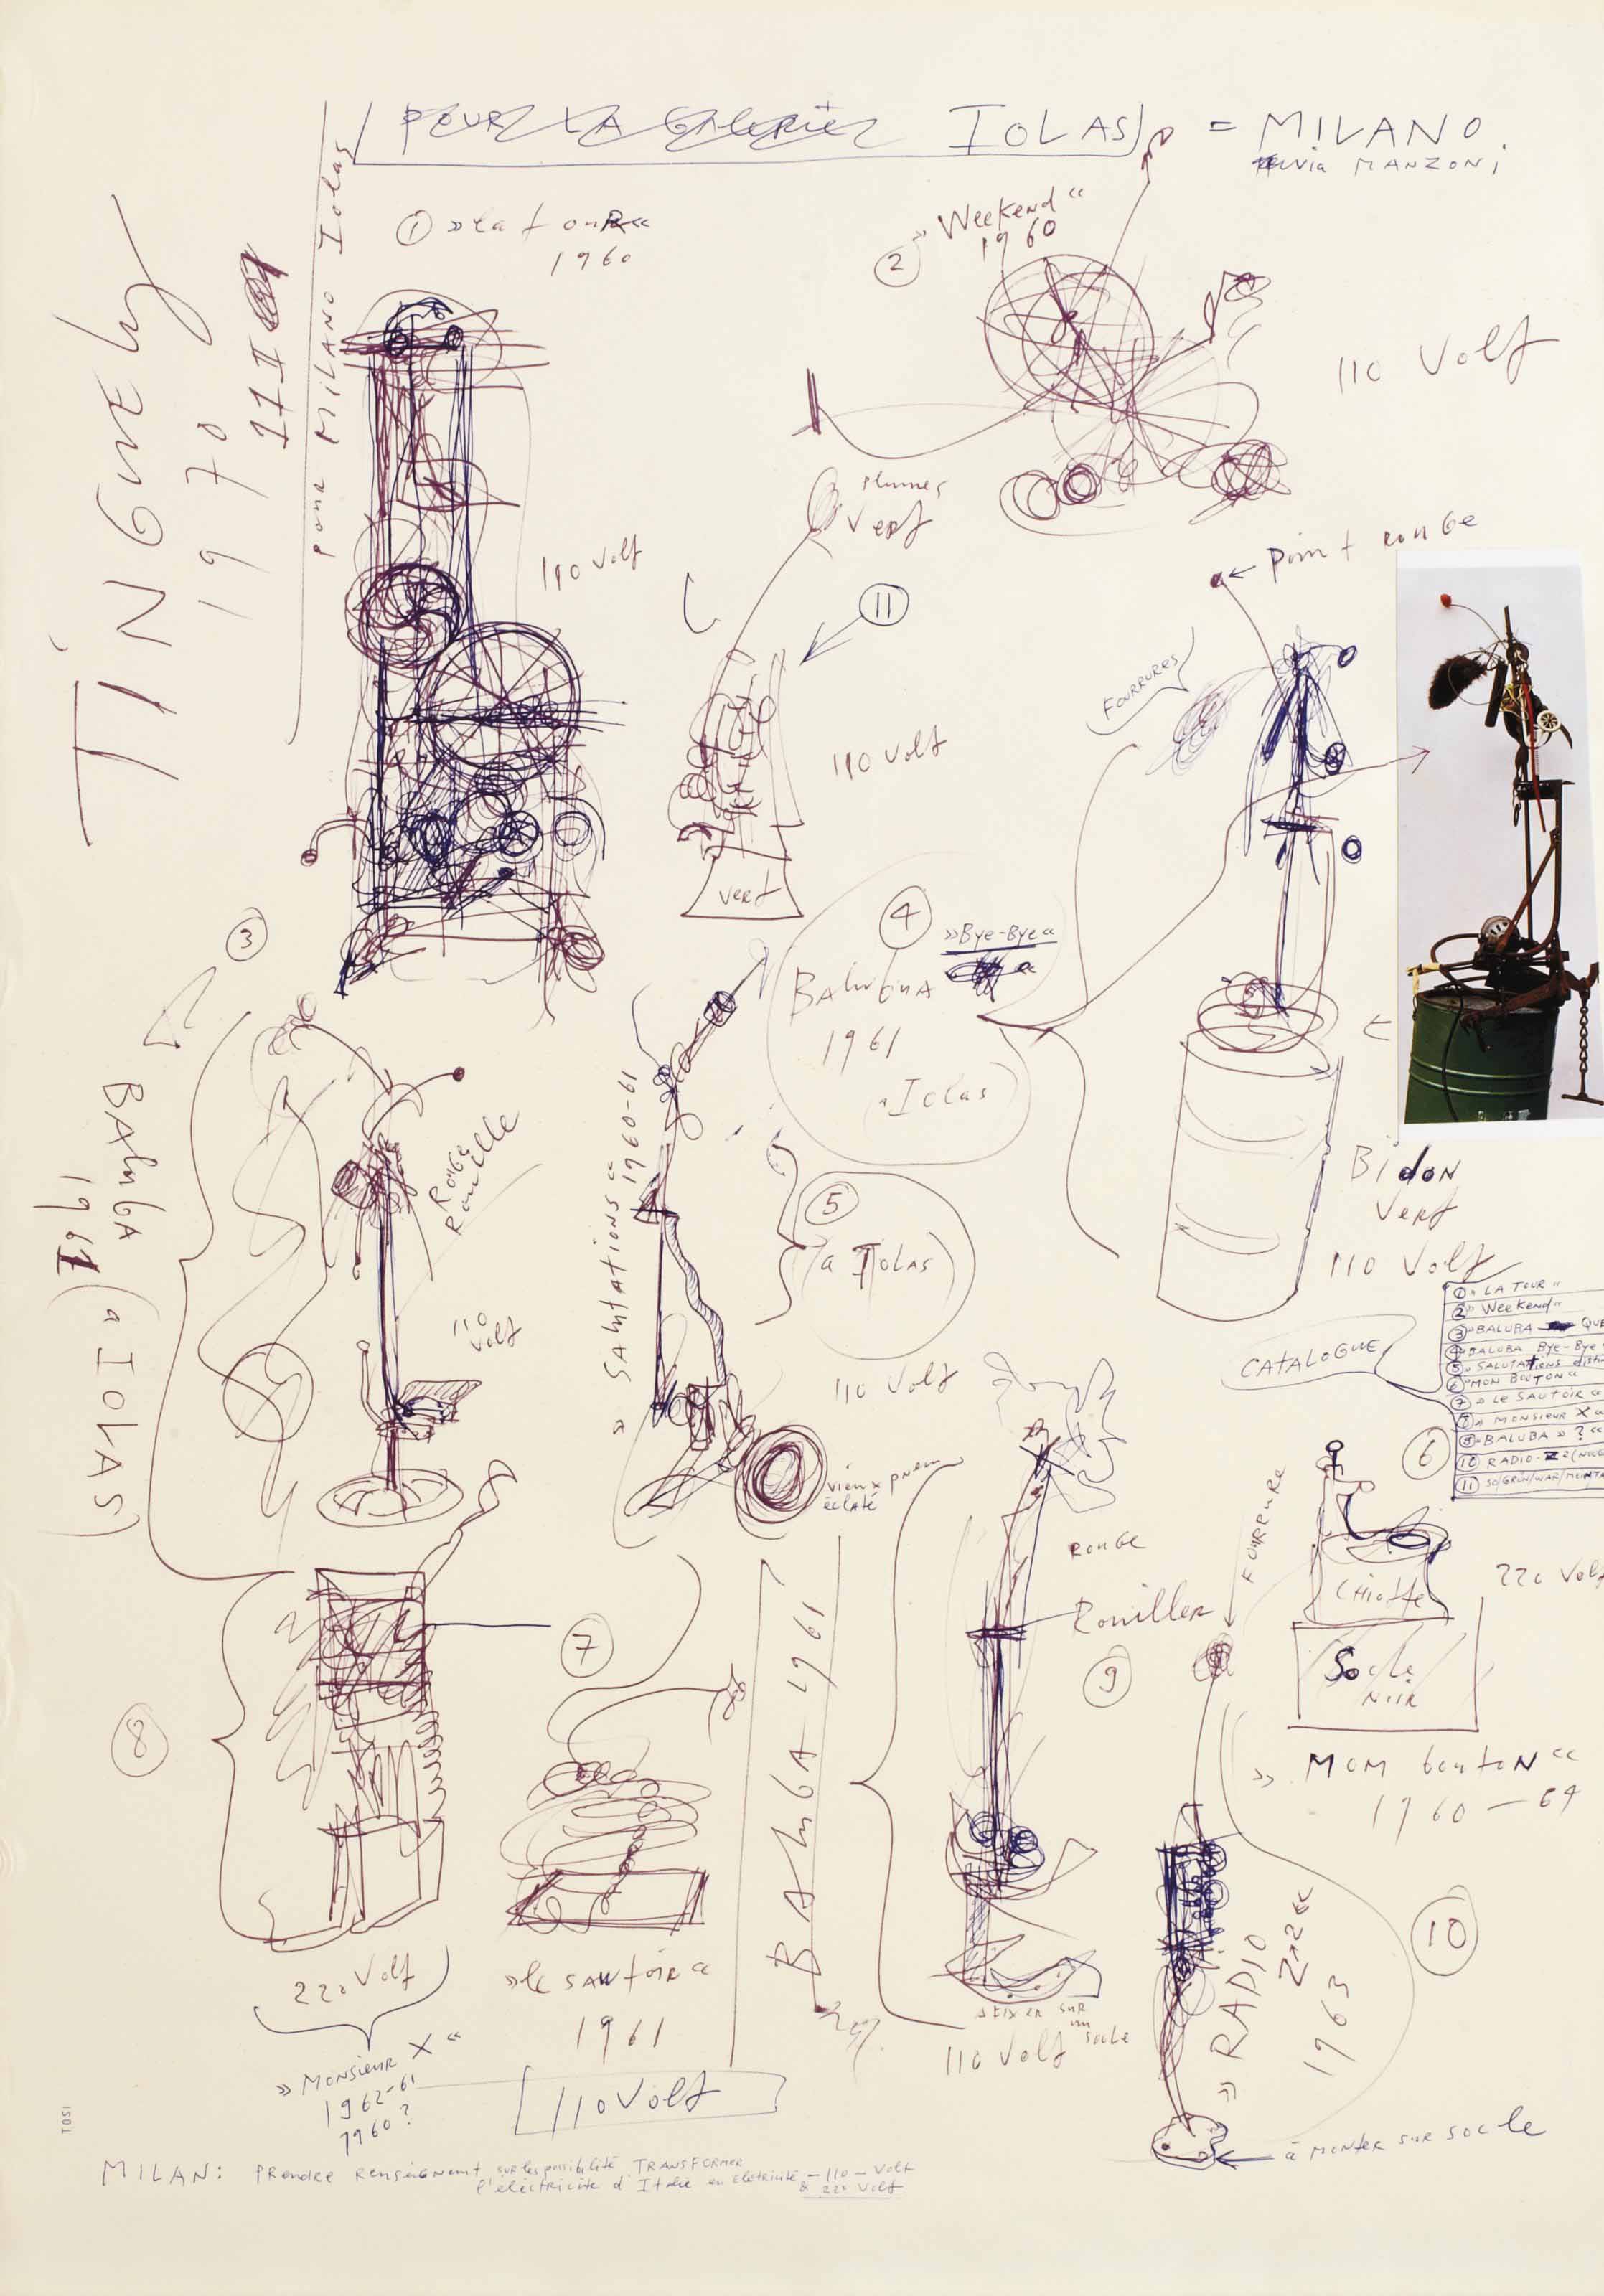 POUR LA GALERIE IOLAS = MILANO
via MANZONi
TiNGuELy
1970
pour MiLANO Iolas
① »La tour«
1960
110 Volt
② »Weekend“
1960
110 Volt
plumes
Vert
⑪
110 Volt
vert
← point rouGe
FOURRURES
④ »Bye-Bye“
BAlubA
1961
Iolas
BidoN
Vert
110 Volt
③
BAlubA
1961 (a IOlAS)
RouGe
Rouille
110
Volt
»SAlutAtions“
1960-61
⑤
(a IOLAS)
110 Volt
vieux pneu
éclaté
CATALOGUE
① » LA TOUR “
② » Weekend“
③ »BALUBA QUE
④ »BALUBA Bye-Bye
⑤ » SALUTATIONS disti
⑥ "MON BOUTON“
⑦ » Le SAUTOIR “
⑧ » MONSIEUR X “
⑨ »BALUBA » ? “
⑩ RADIO-
⑪
⑥
FOURRURE
Chiotte
220 Volt
Socle
NOIR
» MOM boutoN “
1960 — 64
⑧
220 Volt
» Monsieur X “
1962-61
1960?
⑦
»le SAutoir“
1961
110 Volt
BAlubA 1961
⑨
rouGe
Rouiller
a fixer sur
un
socle
110 Volt
⑩
» RADIO
1963
← à monter sur socle
MILAN: PRendre Renseignemt sur les possibilité TRANSFORMER
l'électricité d'Italie en életricité — 110 — Volt
& 220 Volt